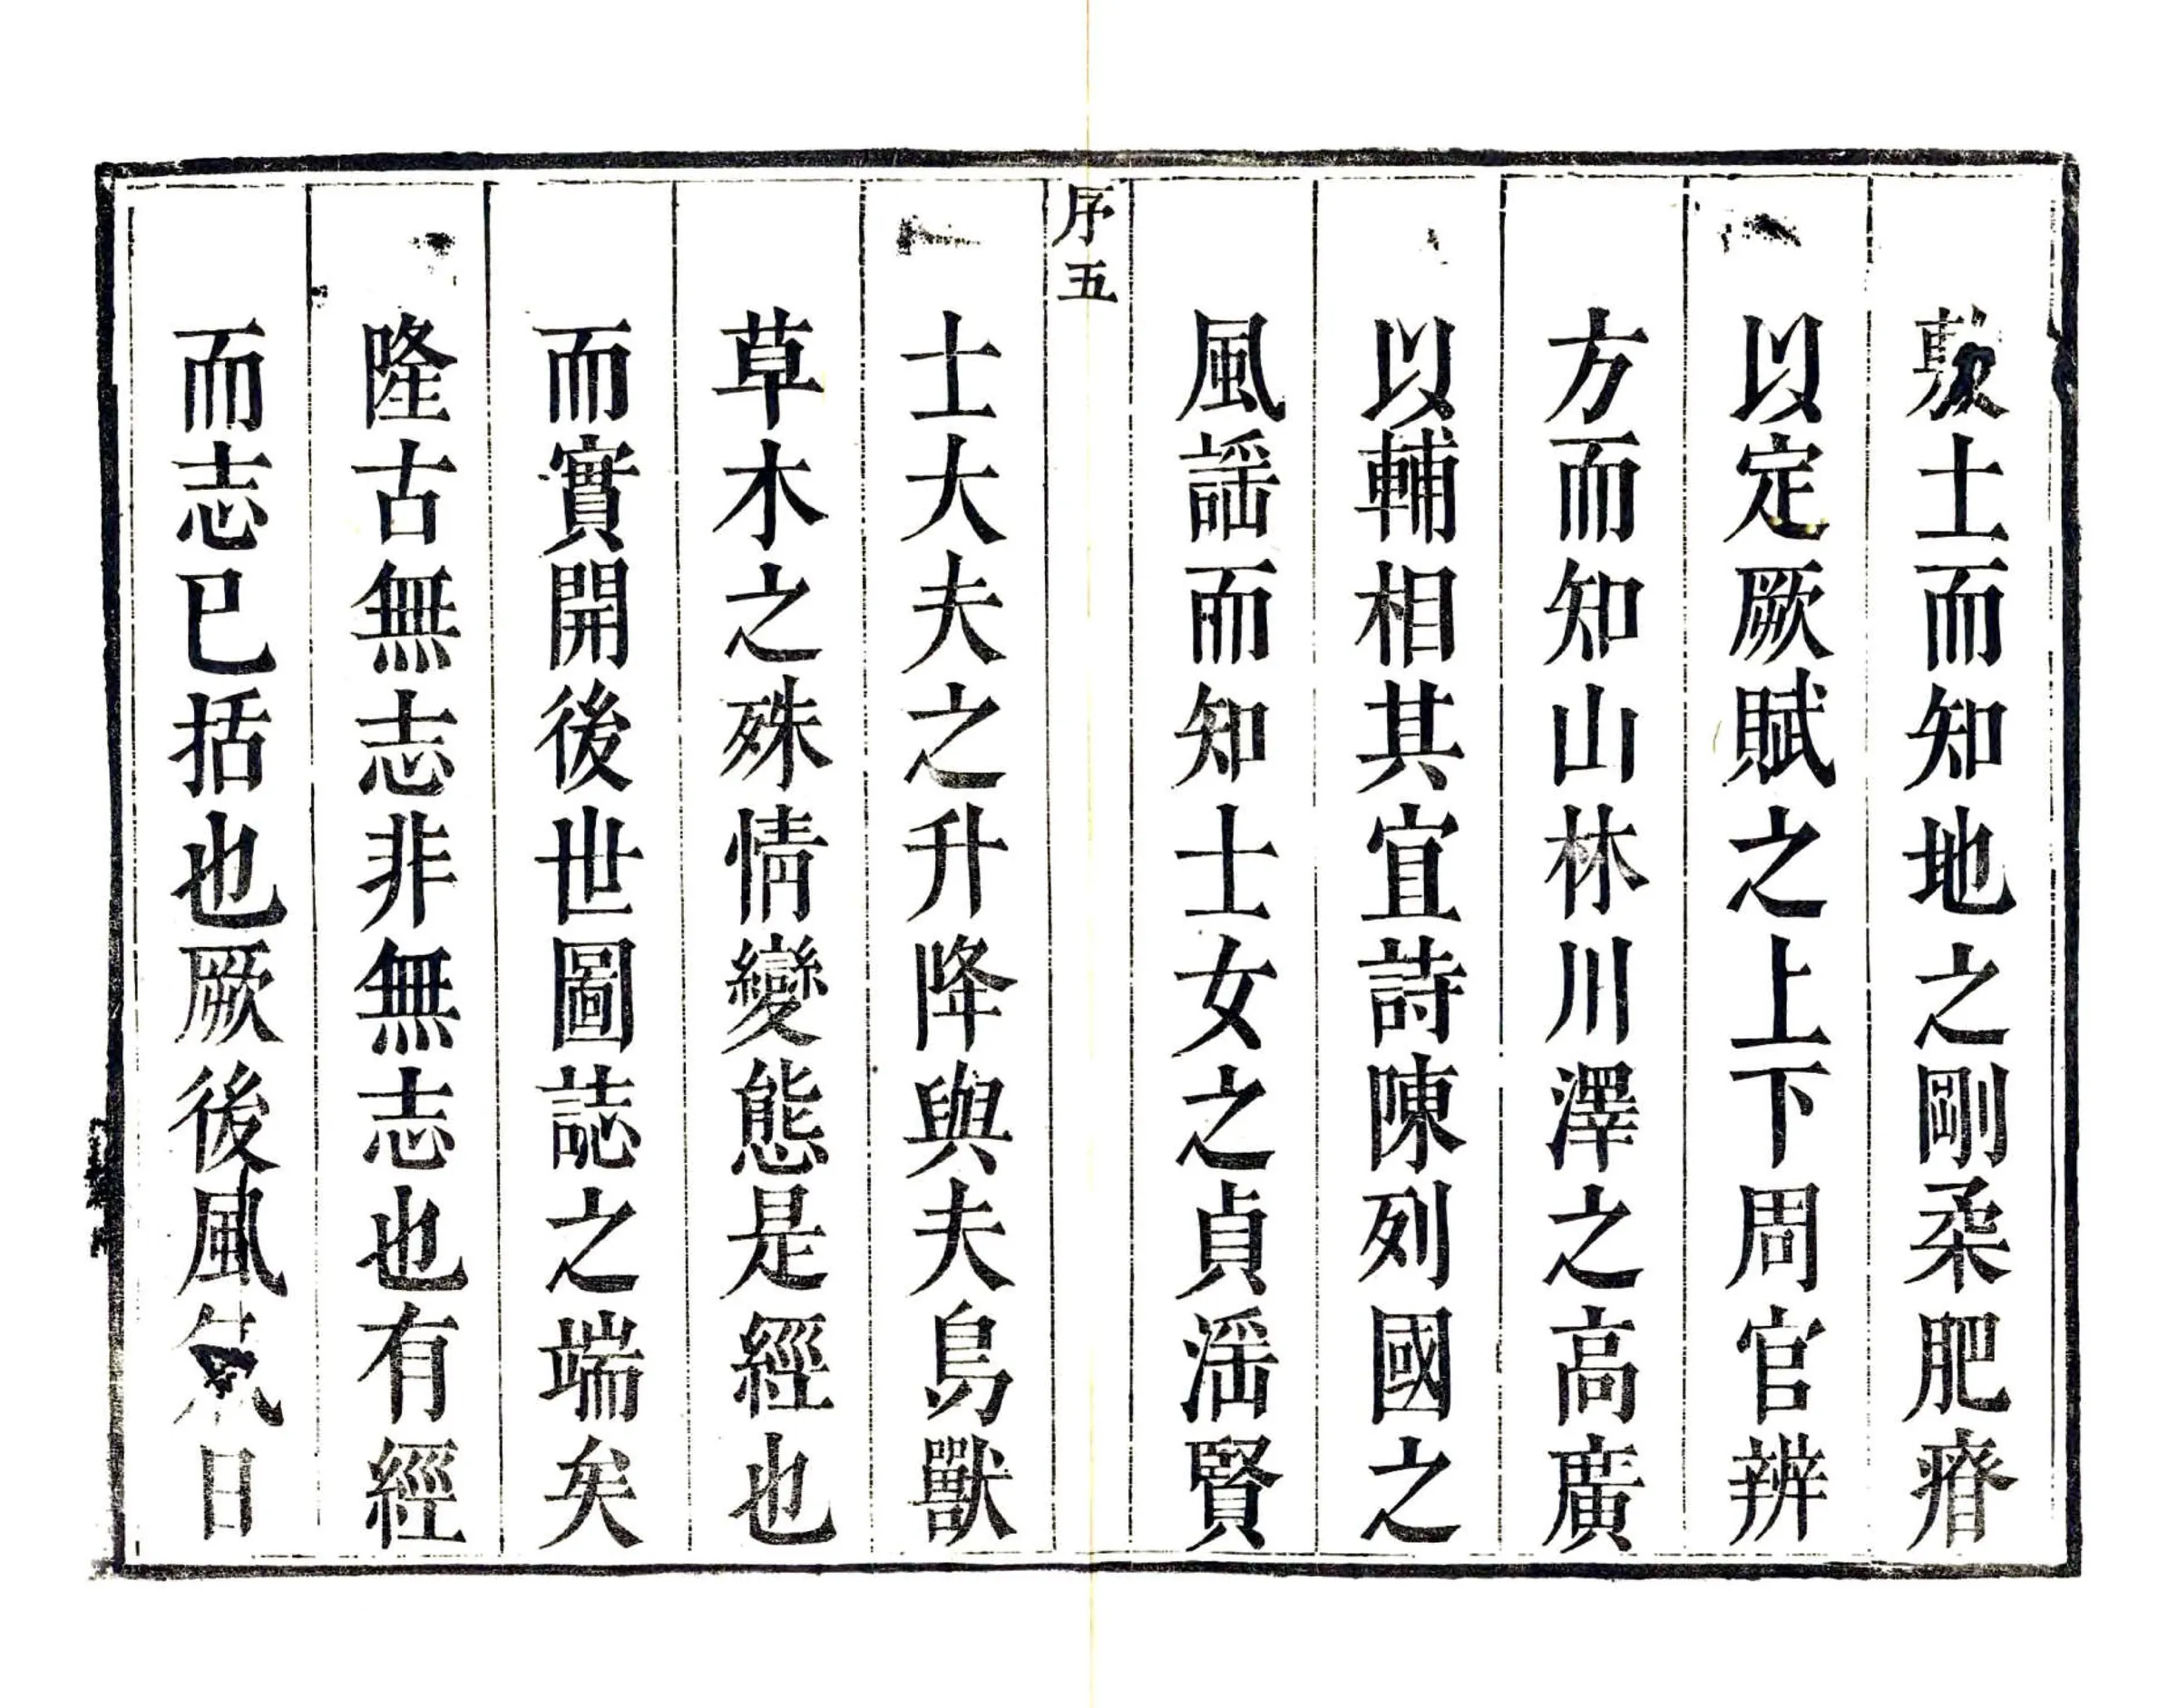 敷土而知地之剛柔肥瘠
以定厥賦之上下周官辨
方而知山林川澤之高廣
以輔相其宜詩陳列國之
風謡而知士女之貞滛賢
序五
士大夫之升降與夫鳥獸
草木之殊情變態是經也
而實開後世圖誌之端矣
隆古無志非無志也有經
而志已括也厥後風氣日